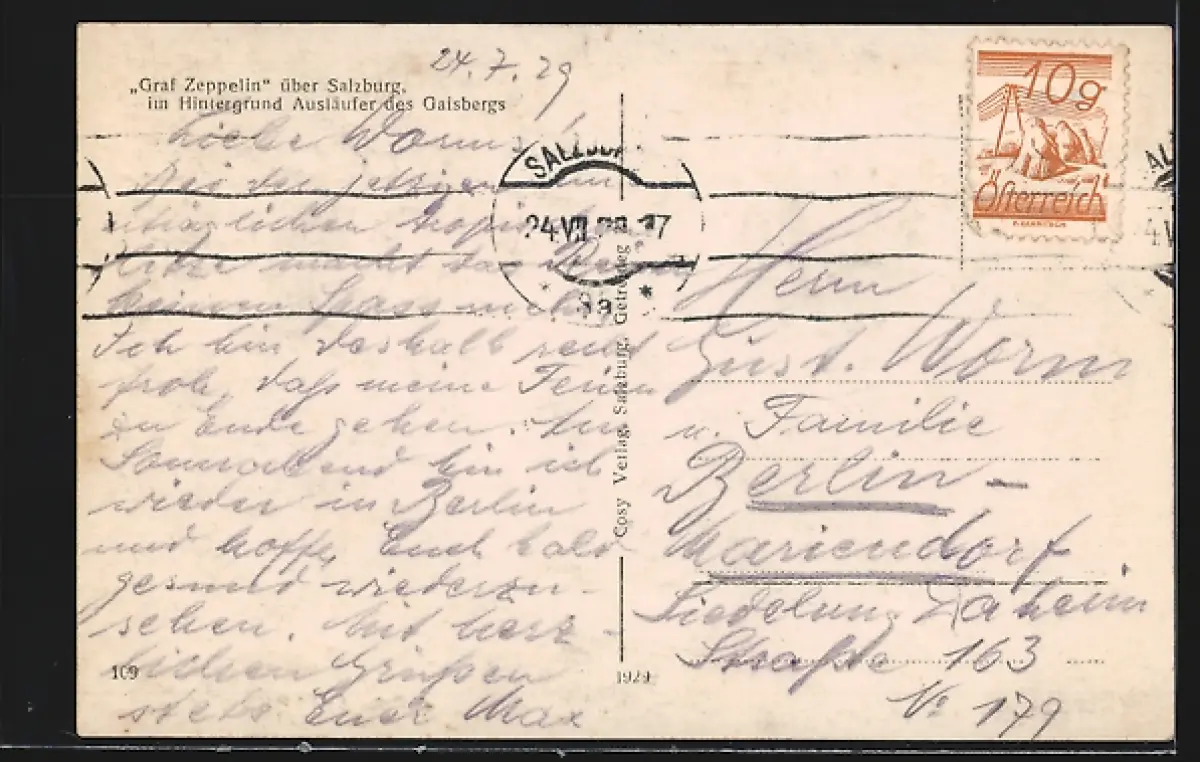 24.7.29
„Graf Zeppelin“ über Salzburg,
im Hintergrund Ausläufer des Gaisbergs
Liebe Worms!
Bei der jetzigen
Hitze macht das
keinen Spass mehr.
Ich bin deshalb
froh, daß meine Ferien
zu Ende gehen. Am
Sonnabend bin ich
wieder in Berlin
und hoffe, Euch bald
gesund wiederzu-
sehen. Mit herz-
lichen Grüßen
stets Euer Max
109
1929
Cosy Verlag, Salzburg, Getreideg
SALZBURG
24.VII 29 17
10g
Österreich
Herrn
Gust. Worm
u. Familie
Berlin -
Mariendorf
Siedelung Daheim
Straße 163
No 179